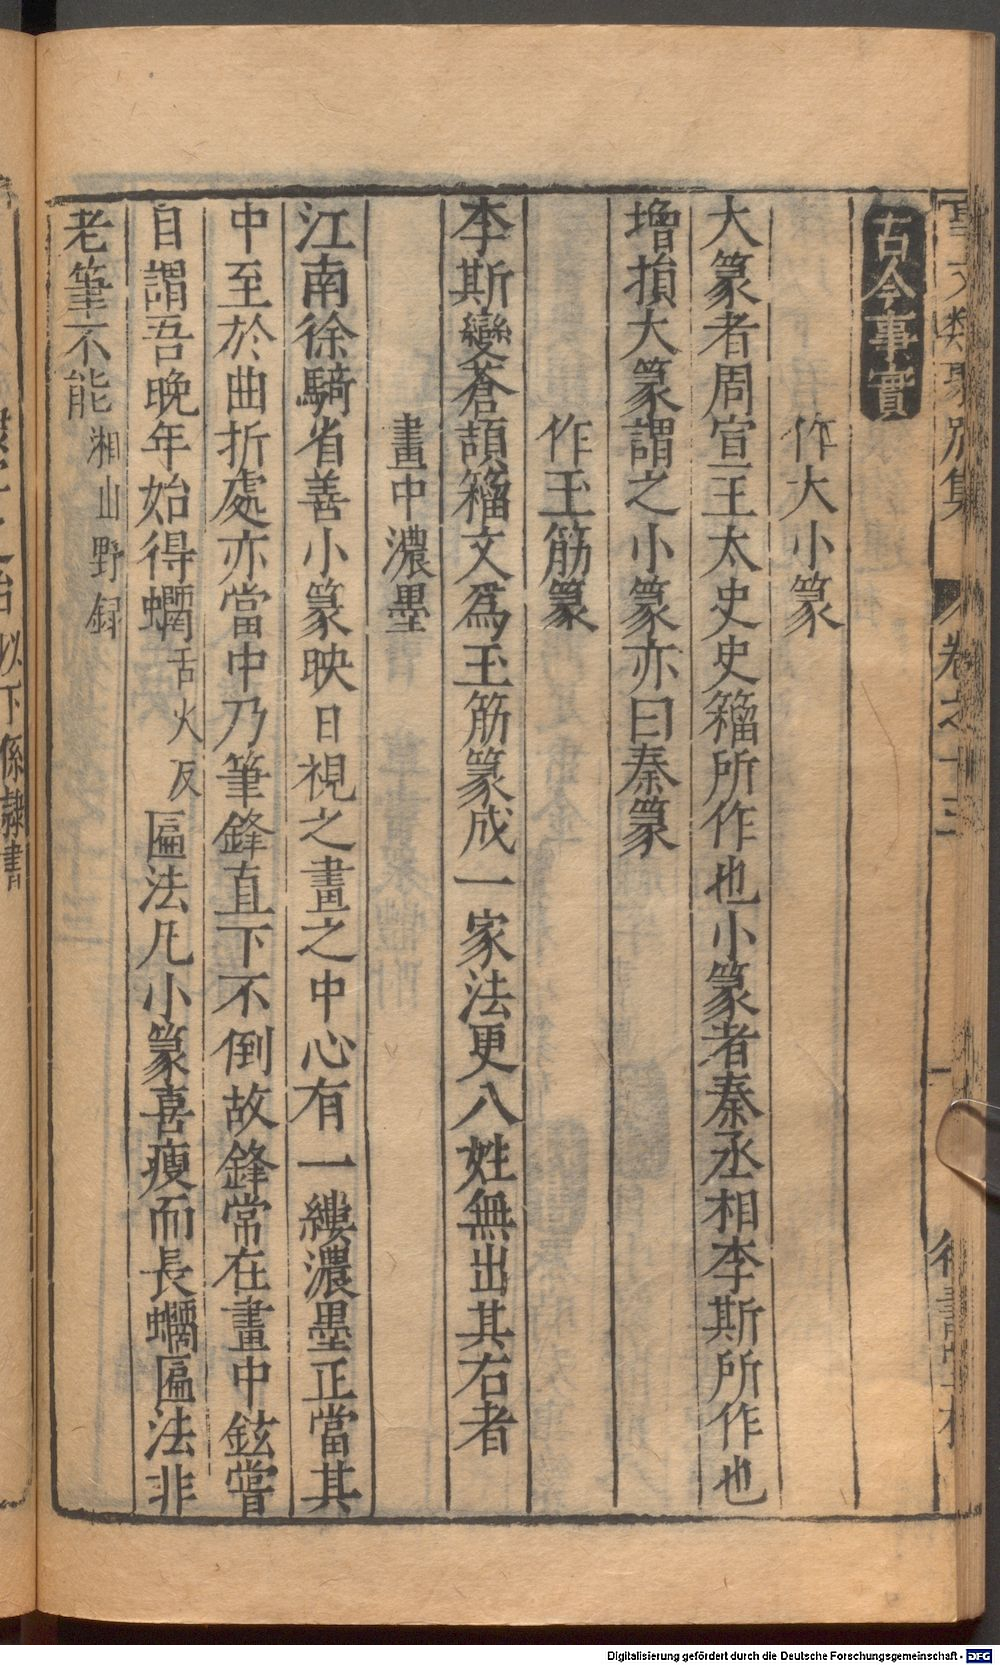 事文類聚別集 卷之十三
古今事實
作大小篆
大篆者周宣王太史史籀所作也小篆者秦丞相李斯所作也
增損大篆謂之小篆亦曰秦篆
作玉筋篆
李斯變蒼頡籀文爲玉筋篆成一家法更八姓無出其右者
畫中濃墨
江南徐騎省善小篆映日視之畫之中心有一縷濃墨正當其
中至於曲折處亦當中乃筆鋒直下不倒故鋒常在畫中鉉嘗
自謂吾晩年始得𧕯舌火反匾法凡小篆喜瘦而長𧕯匾法非
老筆不能湘山野録
以下係隷書
Digitalisierung gefördert durch die Deutsche Forschungsgemeinschaft - DFG